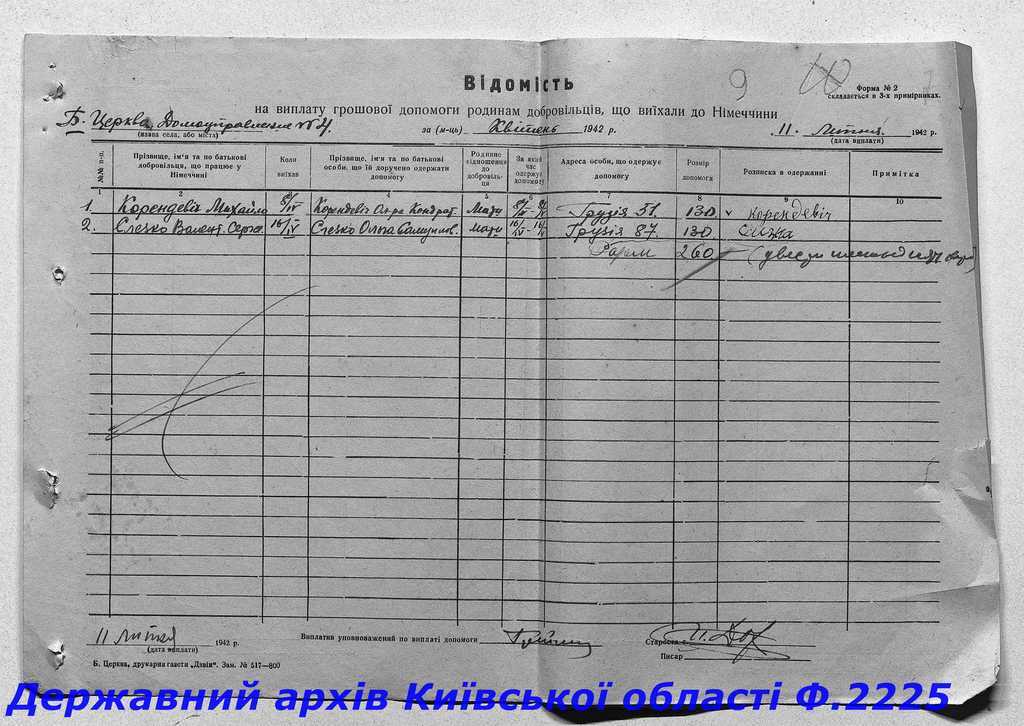 9
Форма № 2
складається в 3-х примірниках.
Відомість
на виплату грошової допомоги родинам добровільців, що виїхали до Німеччини
Б. Церква, Домоуправление №
(назва села, або міста)
за (м-ць) Квітень 1942 р.
11. Липня 1942 р.
(дата виплати)
№№ п-п.
Прізвище, ім'я та по батькові добровільця, що працює у Німеччині
Коли виїхав
Прізвище, ім'я та по батькові особи, що їй доручено одержати допомогу
Родинне відношення до добровільця
За який час одержує допомогу
Адреса особи, що одержує допомогу
Розмір допомоги
Розписка в одержанні
Примітка
1 2 4 5 7 8 9 10
1. Корендевіч Михайло 8/IV Корендевіч Кондрат. Мати Грузія 51. 130 v Корендевіч
2. Слезко Валент. Серг. 16/IV Слезко Ольга Мати 16/IV - 16/V Грузія 87. 130
Разом 260 (двести
11 липня 1942 р.
(дата виплати)
Виплатив уповноважений по виплаті допомоги
Староста
Писар
Б. Церква, друкарня газети „Дзвін". Зам. № 517—800
Державний архів Київської області Ф.2225